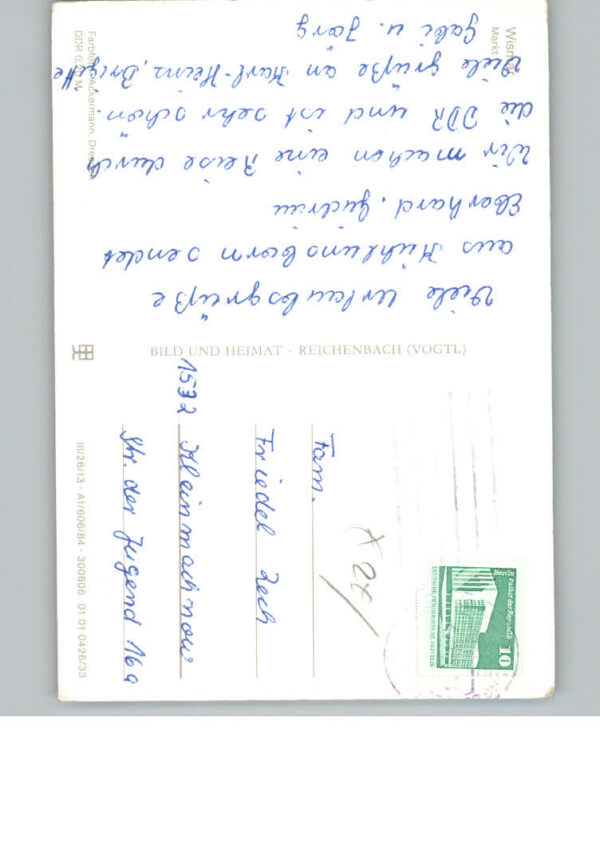 Wismar
Markt
Viele Urlaubsgrüße
aus Kühlungsborn sendet
Eberhard, Gudrun
Wir machen eine Reise durch
die DDR und ist sehr schön.
Viele Grüße an Karl-Heinz, Brigitte
Gabi u. Jörg
Farbfoto: Ackermann, Dresden
DDR 0,20 M
BILD UND HEIMAT · REICHENBACH (VOGTL)
Fam.
Friedel Zech
1532 Kleinmachnow
Str. der Jugend 16a
III/26/13 · A1/606/84 · 300806 01 01 0426/33
Berlin Palast der Republik
10
DEUTSCHE DEMOKRATISCHE REPUBLIK